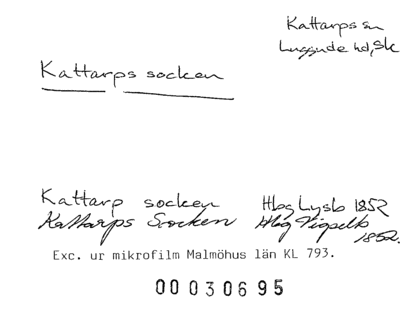 Kattarps sn
Luggude hd, Sk
Kattarps socken
Kattarp socken Hbg Lysb 1852
Kattarps Socken Hbg Vigselb 1852.
Exc. ur mikrofilm Malmöhus län KL 793.
00030695